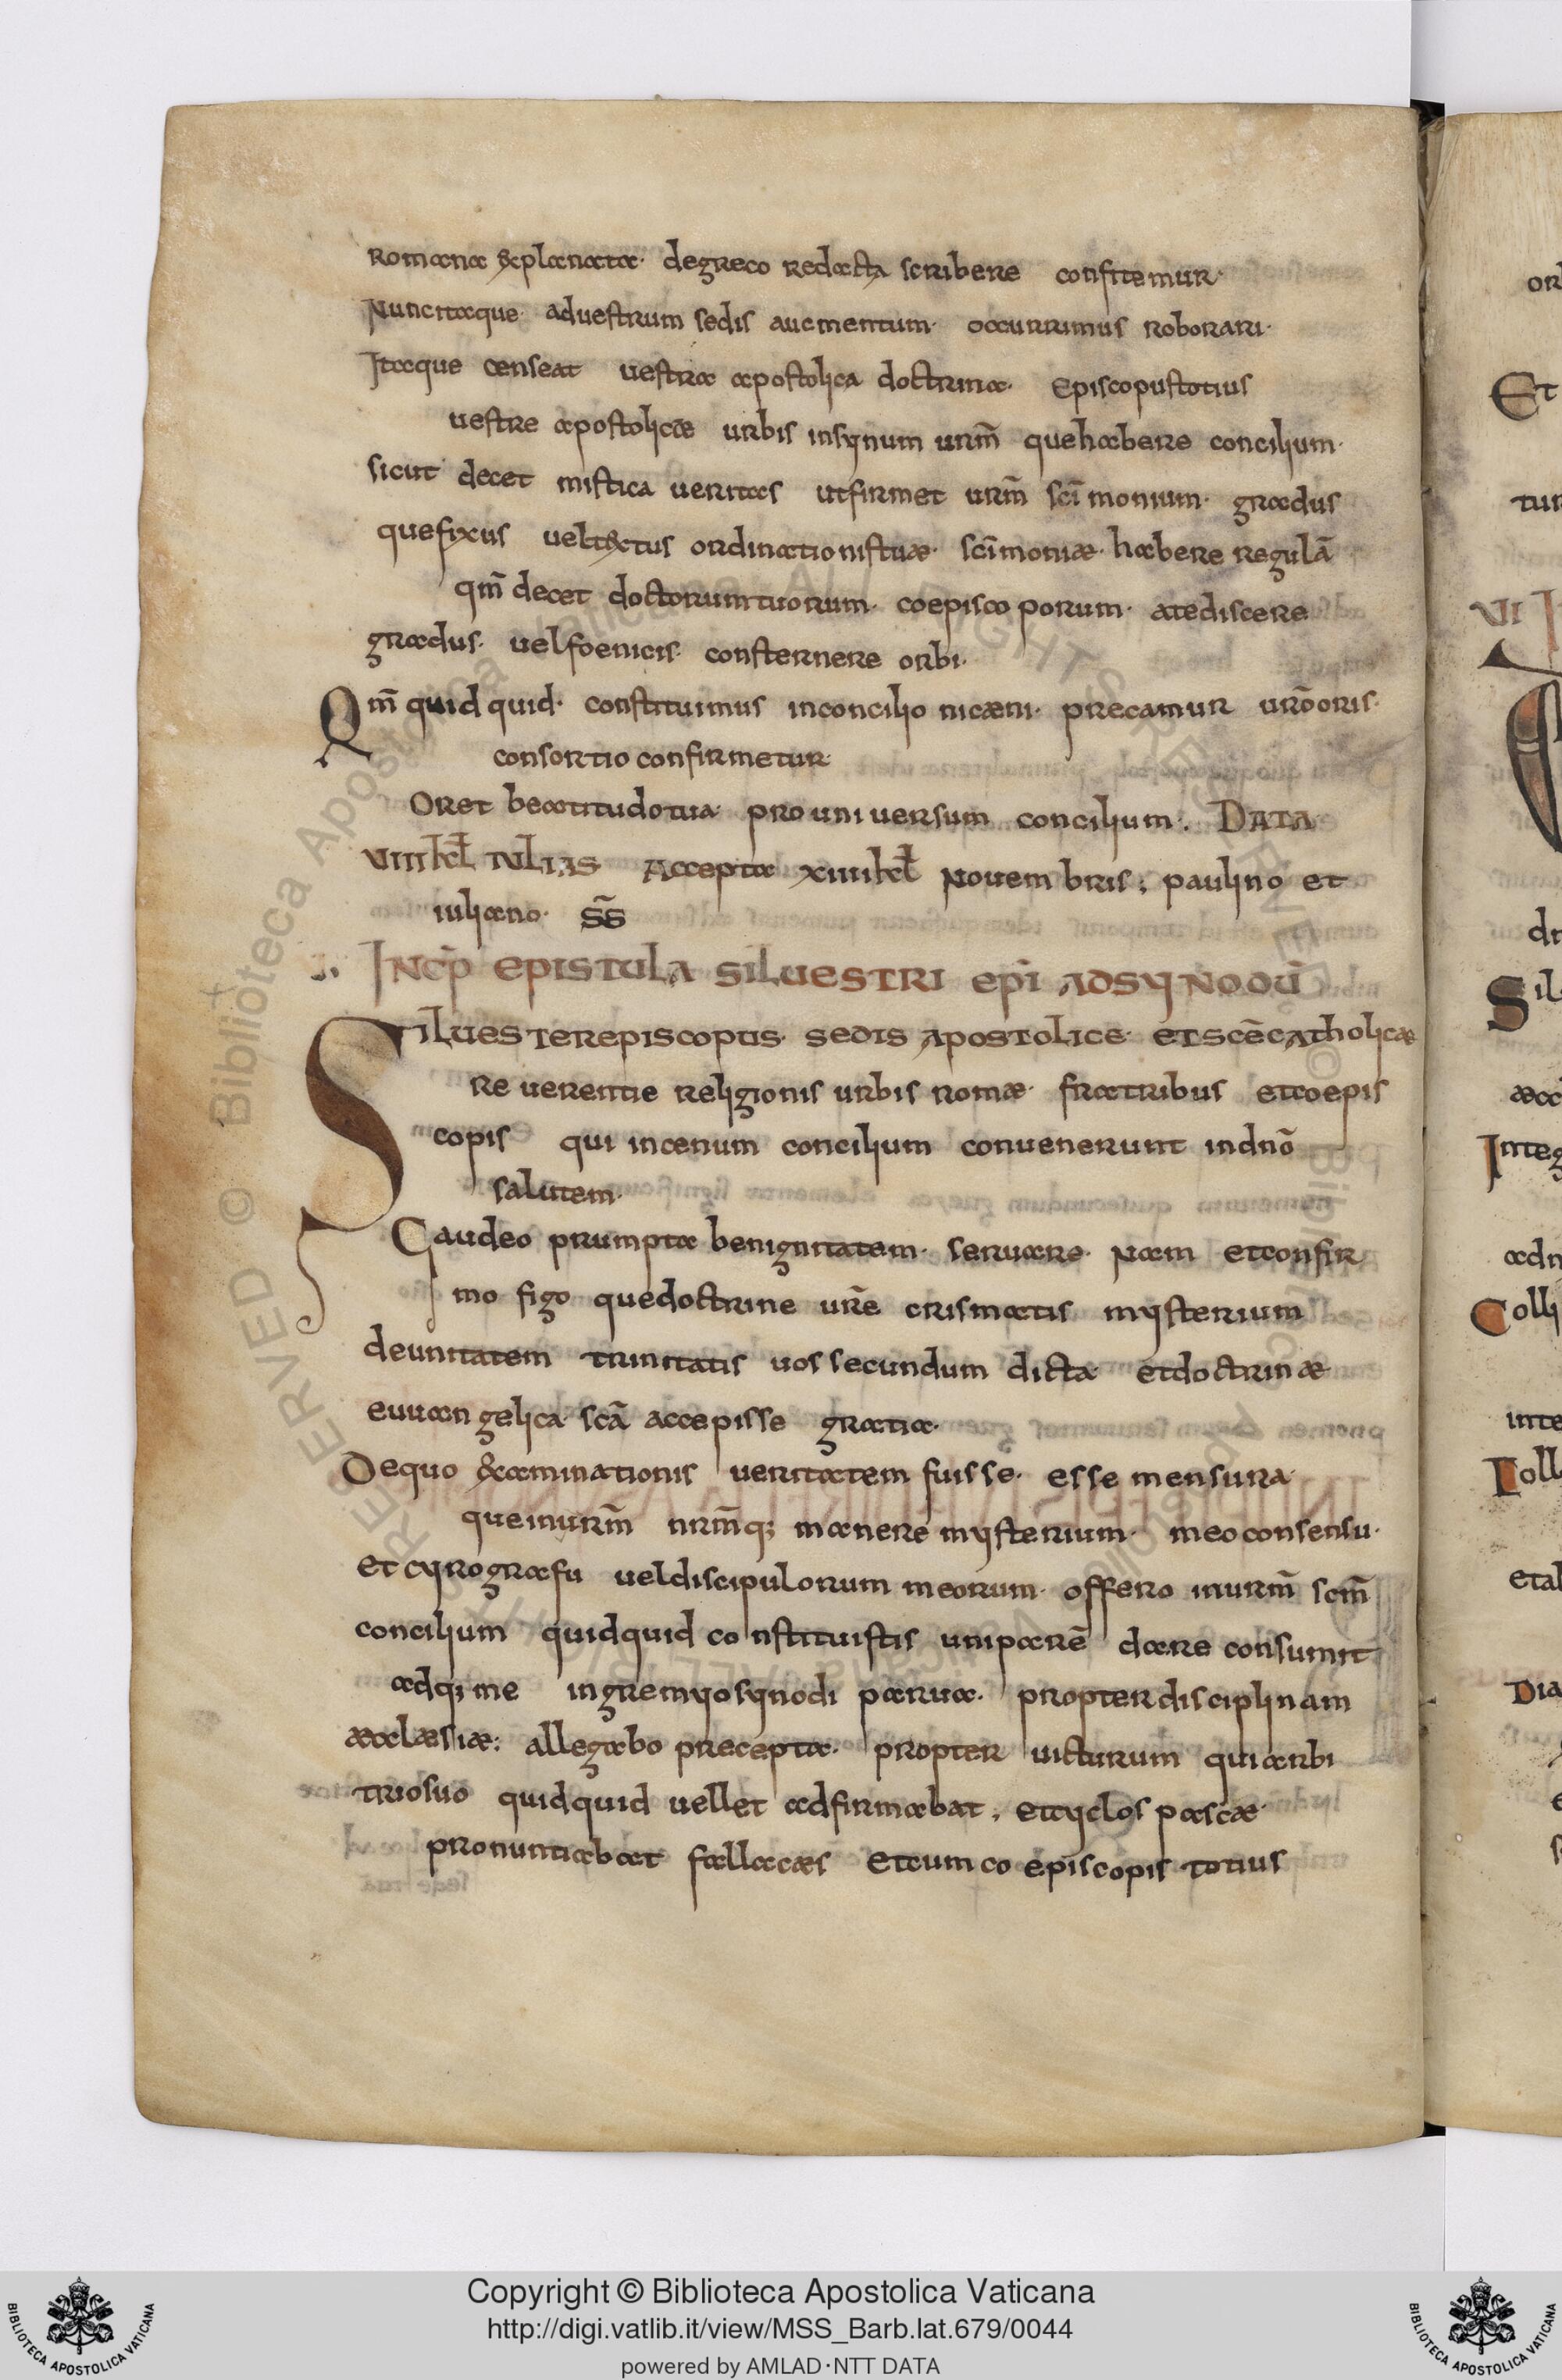 romana & planata· degreco redacta scribere confitemur·
Nuncitaque· aduestrum sedis aucmentum· occurrimus roborari·
Itaque censeat uestra apostolica doctrina· episcopustotius
uestre apostolicae urbis insynum urm̄ quehabere concilium·
sicut decet mistica ueritas utfirmet urm̄ sc̄i monium· gradus
quefixus ueltextus ordinationistuae· sc̄imoniae· habere regulā
qm̄ decet doctorumtuorum· coepisco porum· atediscere
gradus· uelfoenicis· consternere orbi·
Qm̄ quid quid· constituimus inconcilio nicaeni· precamur ur̄ooris·
consortio confirmetur·
Oret beatitudotua· pro uni uersum concilium:· DATA
VIII kl̄ IULIAS Accepta XIIII kl̄ Nouem bris; paulino et
iuliano· s̄s̄
INCP̄ EPISTULA SILUESTRI EPĪ ADSYNODŪ
SILUESTEREPISCOPUS· SEDIS APOSTOLICE· ETSCĒCATholicae
re uerentie religionis urbis romae· fratribus etcoepis
copis qui incenum concilium conuenerunt indnō
salutem·
Gaudeo prumpta benignitatem· seruare· Nam etconfir
mo figo quedoctrine ur̄e crismatis mysterium
deunitatem trinitatis uos secundum dicta· etdoctrinae·
euuan gelica· scā accepisse gratia·
Dequo &aminationis ueritatem fuisse· esse mensura·
queinurm̄ nrm̄q; manere mysterium· meoconsensu·
et cyrografu ueldiscipulorum meorum· offero inurm̄ scm̄
concilium quidquid co nstituistis uniparē dare consumit
adq; me ingremyosynodi parua· propterdisciplinam
aecclaesiae: allegabo precepta· propter uicturum quiarbi
triosuo quidquid uellet adfirmabat; etcyclos pascae·
pronuntiabat fallacaes etcumco episcopis totius
or
Et
tur
VI I
dr
Sil
aecc
Integ
adn
Colli
inte
Toll
etal
Dia
Copyright © Biblioteca Apostolica Vaticana
http://digi.vatlib.it/view/MSS_Barb.lat.679/0044
powered by AMLAD·NTT DATA
BIBLIOTECA APOSTOLICA VATICANA
BIBLIOTECA APOSTOLICA VATICANA